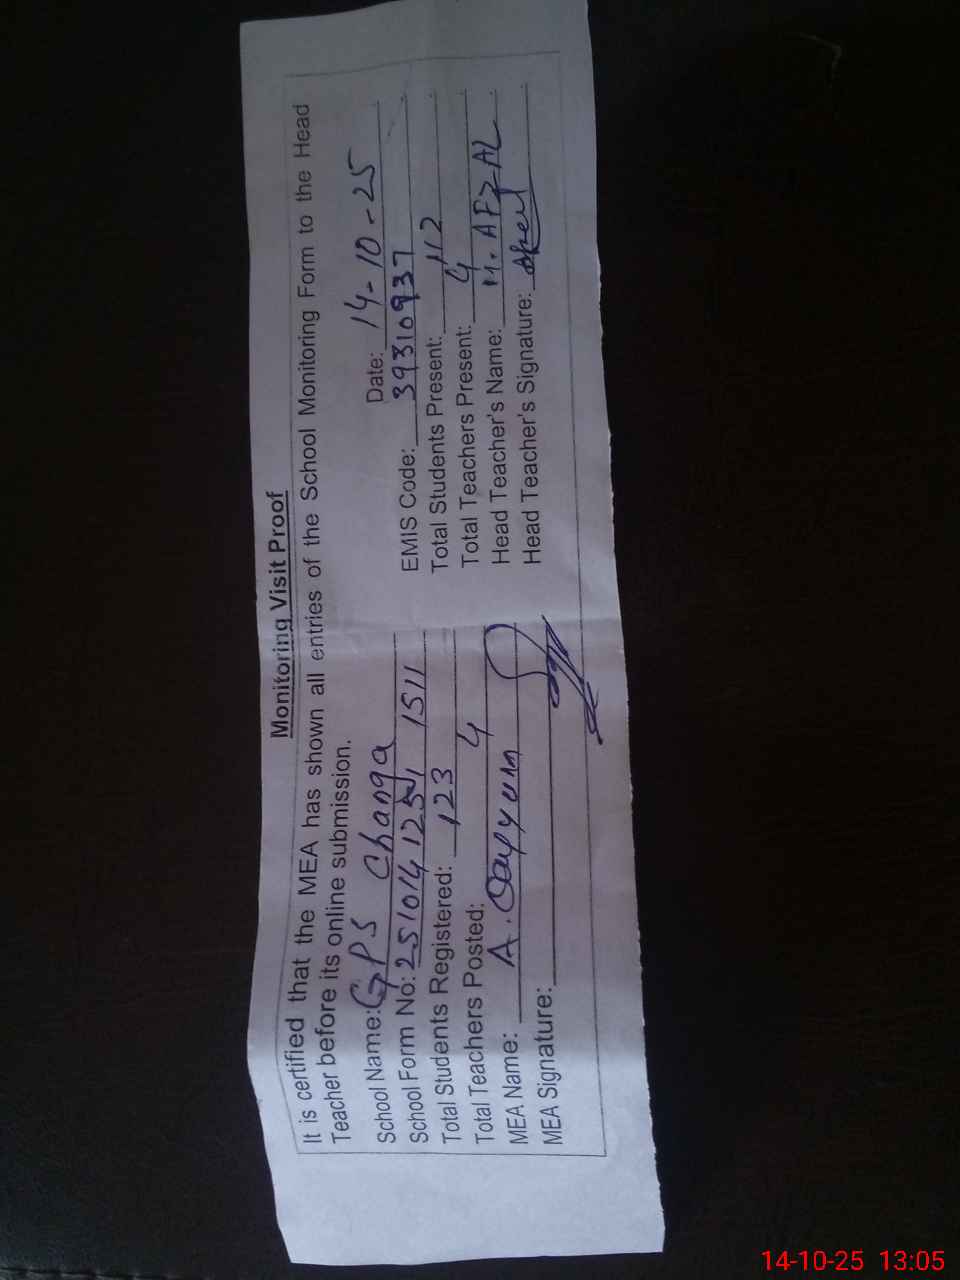 Monitoring Visit Proof
It is certified that the MEA has shown all entries of the School Monitoring Form to the Head
Teacher before its online submission.
Date: 14-10-25
School Name: GPS Changa
EMIS Code: 39310937
School Form No: 1511
Total Students Present: 112
Total Students Registered: 123
Total Teachers Present: 4
Total Teachers Posted: 4
Head Teacher's Name: M. AFZAL
MEA Name: A. Qayyum
Head Teacher's Signature:
MEA Signature:
14-10-25 13:05